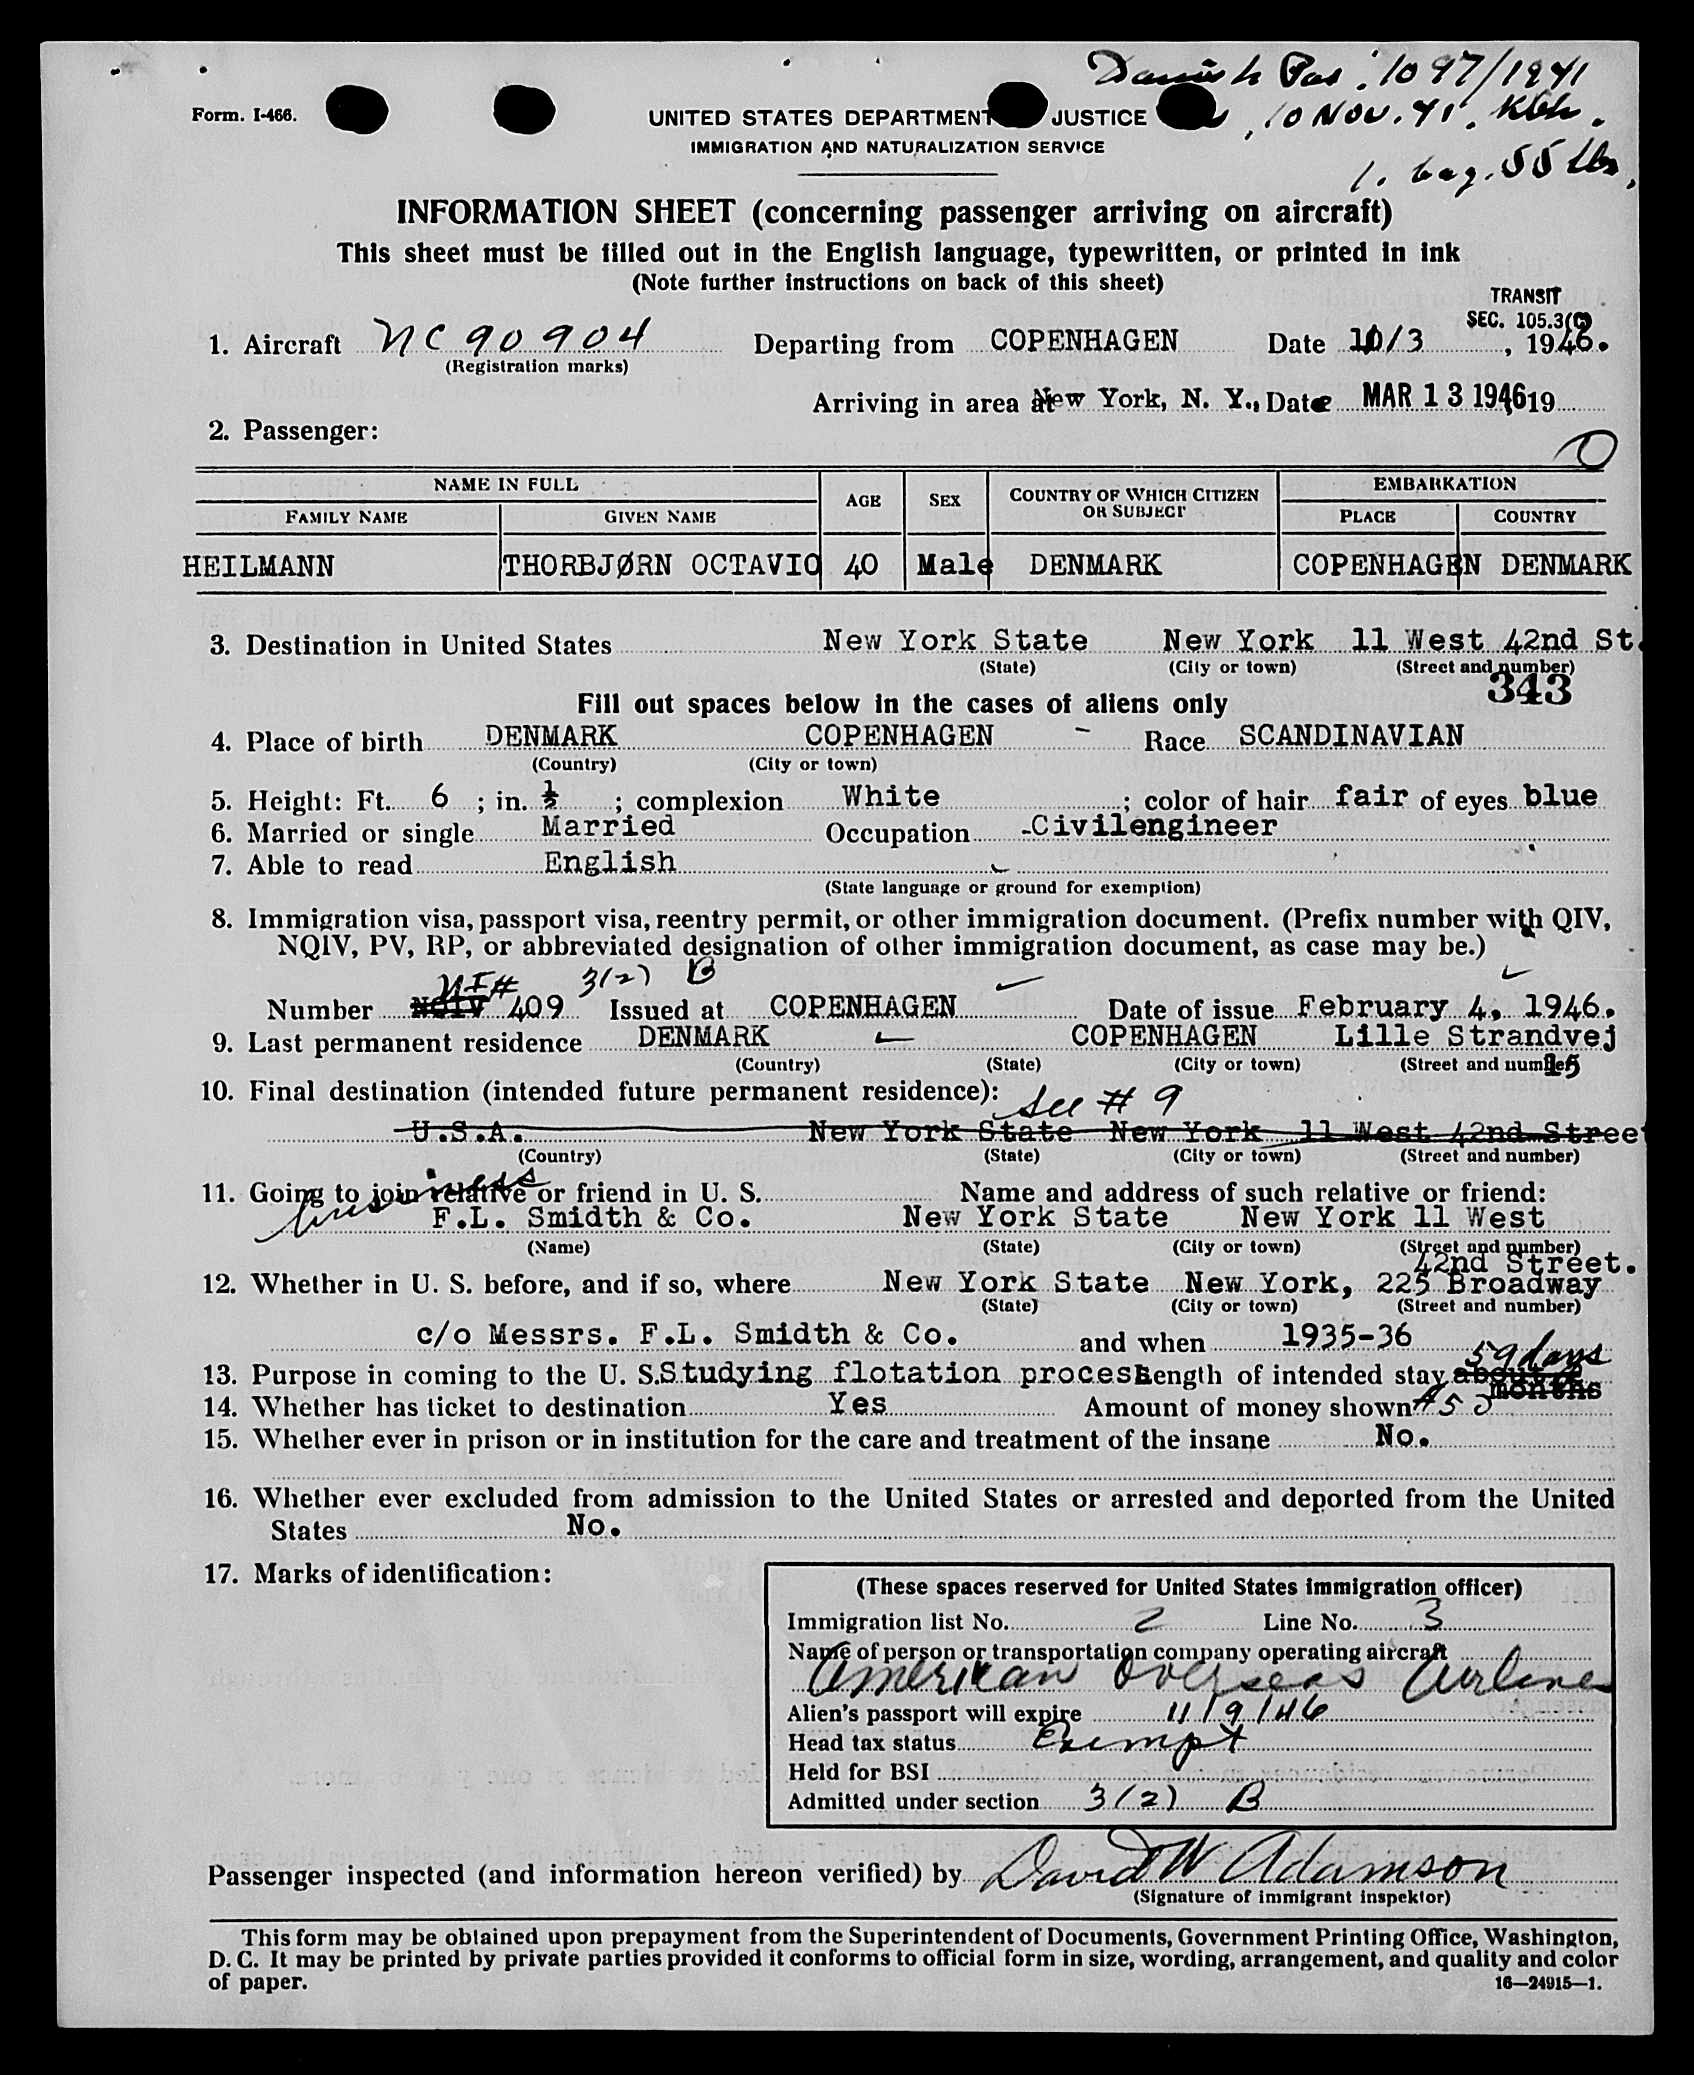 Danish Pas: 1097/1941
Form. I-466.
UNITED STATES DEPARTMENT JUSTICE
, 10 Nov. 41. Kbh.
IMMIGRATION AND NATURALIZATION SERVICE
1. bag. 55 lbs,
INFORMATION SHEET (concerning passenger arriving on aircraft)
This sheet must be filled out in the English language, typewritten, or printed in ink
(Note further instructions on back of this sheet)
TRANSIT
SEC. 105.3(C)
1. Aircraft NC 90904 Departing from COPENHAGEN Date 10/3, 1946.
(Registration marks)
Arriving in area at New York, N. Y., Date MAR 13 1946 19
2. Passenger:
0
NAME IN FULL AGE SEX COUNTRY OF WHICH CITIZEN OR SUBJECT EMBARKATION
FAMILY NAME GIVEN NAME PLACE COUNTRY
HEILMANN THORBJØRN OCTAVIO 40 Male DENMARK COPENHAGEN DENMARK
3. Destination in United States New York State New York 11 West 42nd St.
(State) (City or town) (Street and number)
343
Fill out spaces below in the cases of aliens only
4. Place of birth DENMARK COPENHAGEN - Race SCANDINAVIAN
(Country) (City or town)
5. Height: Ft. 6 ; in. ½ ; complexion White ; color of hair fair of eyes blue
6. Married or single Married Occupation -Civilengineer
7. Able to read English
(State language or ground for exemption)
8. Immigration visa, passport visa, reentry permit, or other immigration document. (Prefix number with QIV,
NQIV, PV, RP, or abbreviated designation of other immigration document, as case may be.)
3(2) B
Number NQIV 409 Issued at COPENHAGEN Date of issue February 4, 1946.
9. Last permanent residence DENMARK COPENHAGEN Lille Strandvej
(Country) (State) (City or town) (Street and number)
15
10. Final destination (intended future permanent residence):
See # 9
U.S.A. New York State New York 11 West 42nd Street
(Country) (State) (City or town) (Street and number)
business
11. Going to join relative or friend in U. S. Name and address of such relative or friend:
F.L. Smidth & Co. New York State New York 11 West
(Name) (State) (City or town) (Street and number)
42nd Street.
12. Whether in U. S. before, and if so, where New York State New York, 225 Broadway
(State) (City or town) (Street and number)
c/o Messrs. F.L. Smidth & Co. and when 1935-36
59 days
13. Purpose in coming to the U. S. Studying flotation process Length of intended stay about
months
14. Whether has ticket to destination Yes Amount of money shown $50
15. Whether ever in prison or in institution for the care and treatment of the insane No.
16. Whether ever excluded from admission to the United States or arrested and deported from the United
States No.
17. Marks of identification:
(These spaces reserved for United States immigration officer)
Immigration list No. 2 Line No. 3
Name of person or transportation company operating aircraft
American Overseas Airlines
Alien's passport will expire 11/9/46
Head tax status Exempt
Held for BSI
Admitted under section 3(2) B
Passenger inspected (and information hereon verified) by David W Adamson
(Signature of immigrant inspektor)
This form may be obtained upon prepayment from the Superintendent of Documents, Government Printing Office, Washington,
D. C. It may be printed by private parties provided it conforms to official form in size, wording, arrangement, and quality and color
of paper.
16—24915—1.